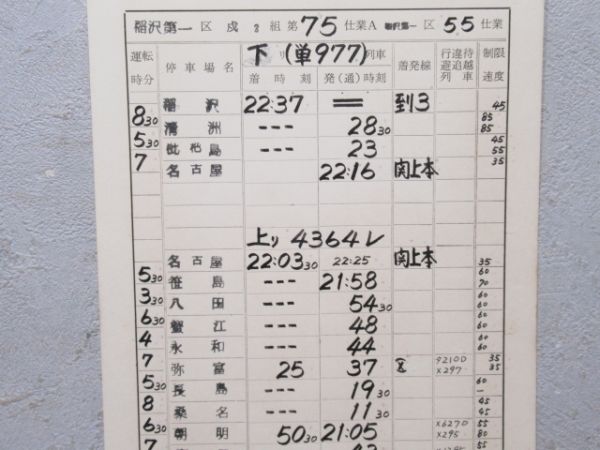 稲沢第一 区 戌 2 組 第 75 仕業A 稲沢第一 区 55 仕業
運転時分 停車場名 下り(単977)列車 着時刻 発(通)時刻 着発線 行違待避追越列車 制限速度
稲沢 22:37 = 到3 45
8 30 85
清洲 --- 28 30 85
5 30 45
枇杷島 --- 23 55
7 35
名古屋 22:16 関上本
上り 4364レ
名古屋 22:03 30 22:25 関上本 35
5 30 60
笹島 --- 21:58 70
3 30 60
八田 --- 54 30 60
6 30 60
蟹江 --- 48 60
4 60
永和 --- 44 60
7 35
弥富 25 37 9210D X297 35
5 30 60
長島 --- 19 30 —
8 45
桑名 --- 11 30 45
6 30 55
朝明 50 30 21:05 X6270 X295 80
7